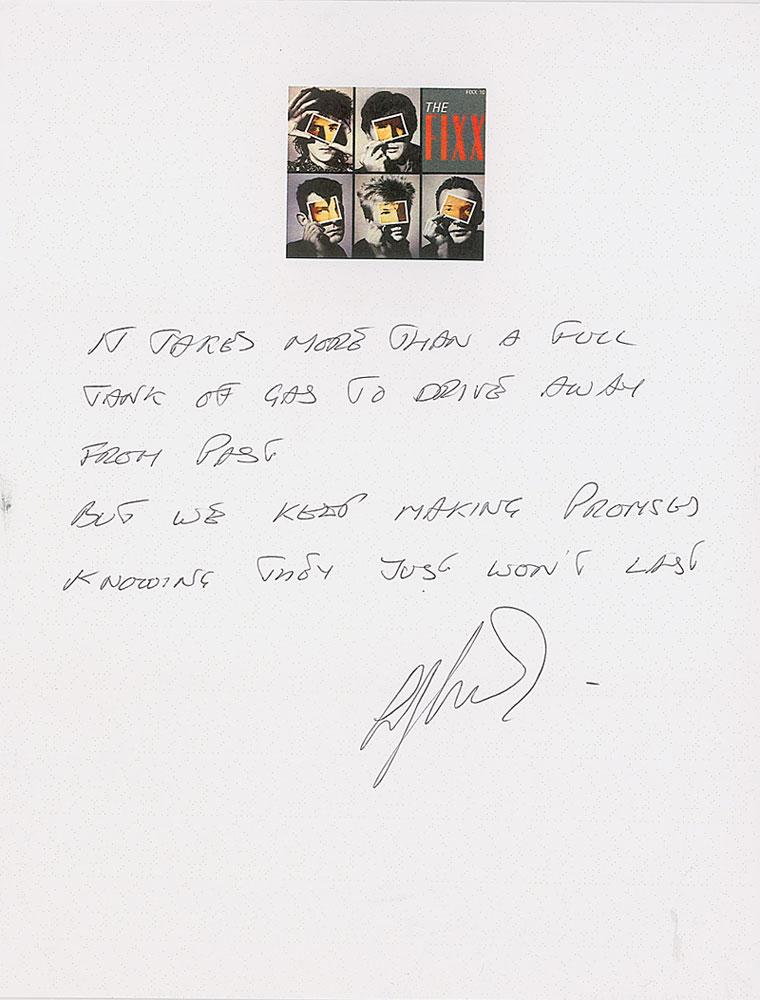 THE
FIXX
IT TAKES MORE THAN A FULL
TANK OF GAS TO DRIVE AWAY
FROM PAST
BUT WE KEEP MAKING PROMISES
KNOWING THEY JUST WON'T LAST